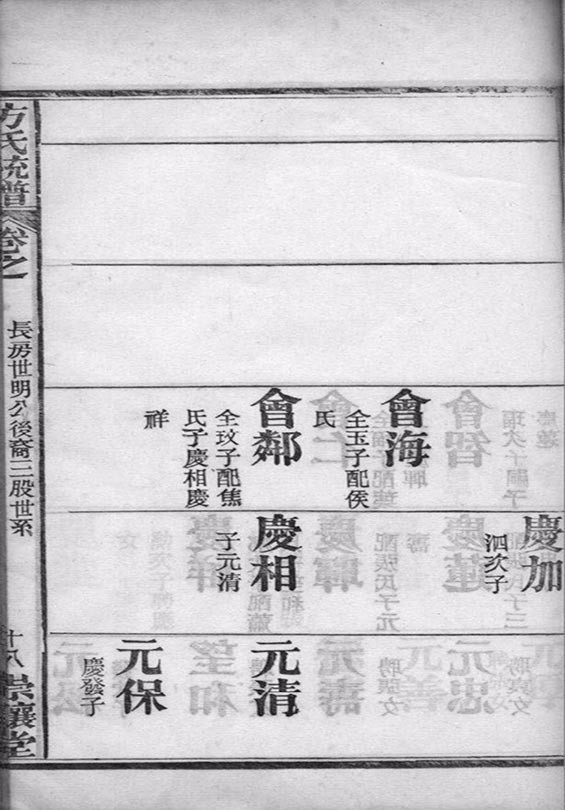 會海
全玉子配侯
氏
會鄰
全玟子配焦
氏子慶相慶
祥
慶加
泗次子
慶相
子元清
元清
元保
慶發子
方氏統譜
卷之一
長房世明公後裔二股世系
十八
崇讓堂